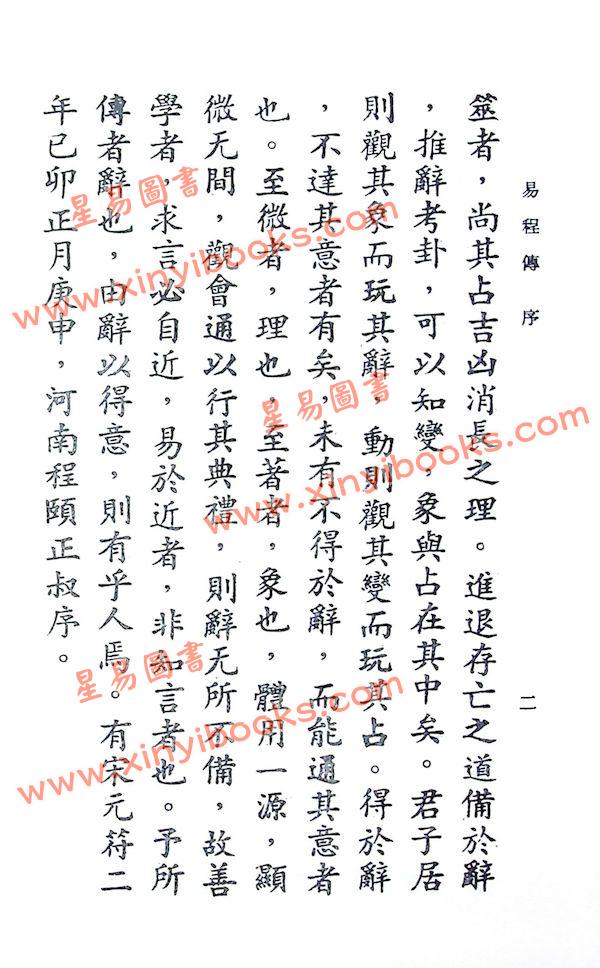 易程傳 序
二
筮者，尚其占吉凶消長之理。進退存亡之道備於辭
，推辭考卦，可以知變，象與占在其中矣。君子居
則觀其象而玩其辭，動則觀其變而玩其占。得於辭
，不達其意者有矣，未有不得於辭，而能通其意者
也。至微者，理也，至著者，象也，體用一源，顯
微无間，觀會通以行其典禮，則辭无所不備，故善
學者，求言必自近，易於近者，非知言者也。予所
傳者辭也，由辭以得意，則有乎人焉。有宋元符二
年已卯正月庚申，河南程頤正叔序。
星易圖書
www.xinyibooks.com
星易圖書
www.xinyibooks.com
星易圖書
www.xinyibooks.com